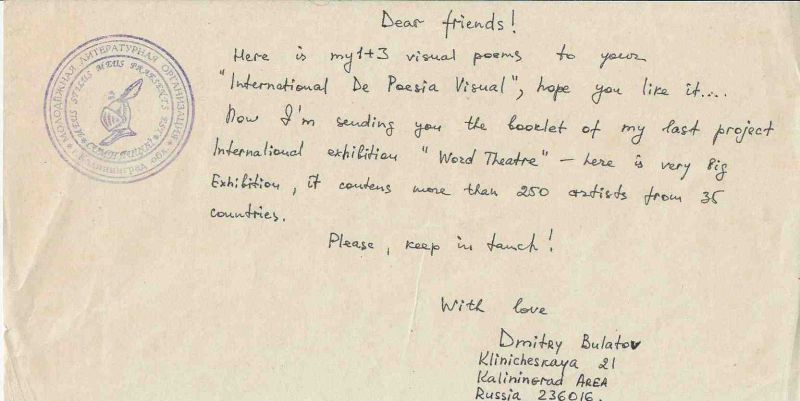 Dear friends!
Here is my 1+3 visual poems to your
"International De Poesia Visual", hope you like it....
Now I'm sending you the booklet of my last project
International exhibition "Word Theatre" – here is very big
Exhibition, it contens more than 250 artists from 35
countries.
Please, keep in tauch!
With love
Dmitry Bulatov
Klinicheskaya 21
Kaliningrad AREA
Russia 236016.
МОЛОДЁЖНАЯ ЛИТЕРАТУРНАЯ ОРГАНИЗАЦИЯ
г. Калининград
STILUS MEUS